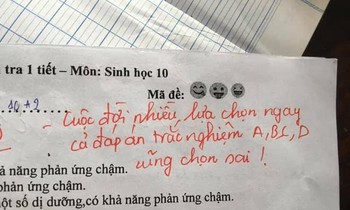 tra 1 tiết – Môn: Sinh học 10
Mã đề:
10 A2
- Cuộc đời nhiều lựa chọn ngay
cả đáp án trắc nghiệm A, B, C, D
cũng chọn sai !
ả năng phản ứng chậm.
phản ứng chậm.
ột số dị dưỡng,có khả năng phản ứng chậm.